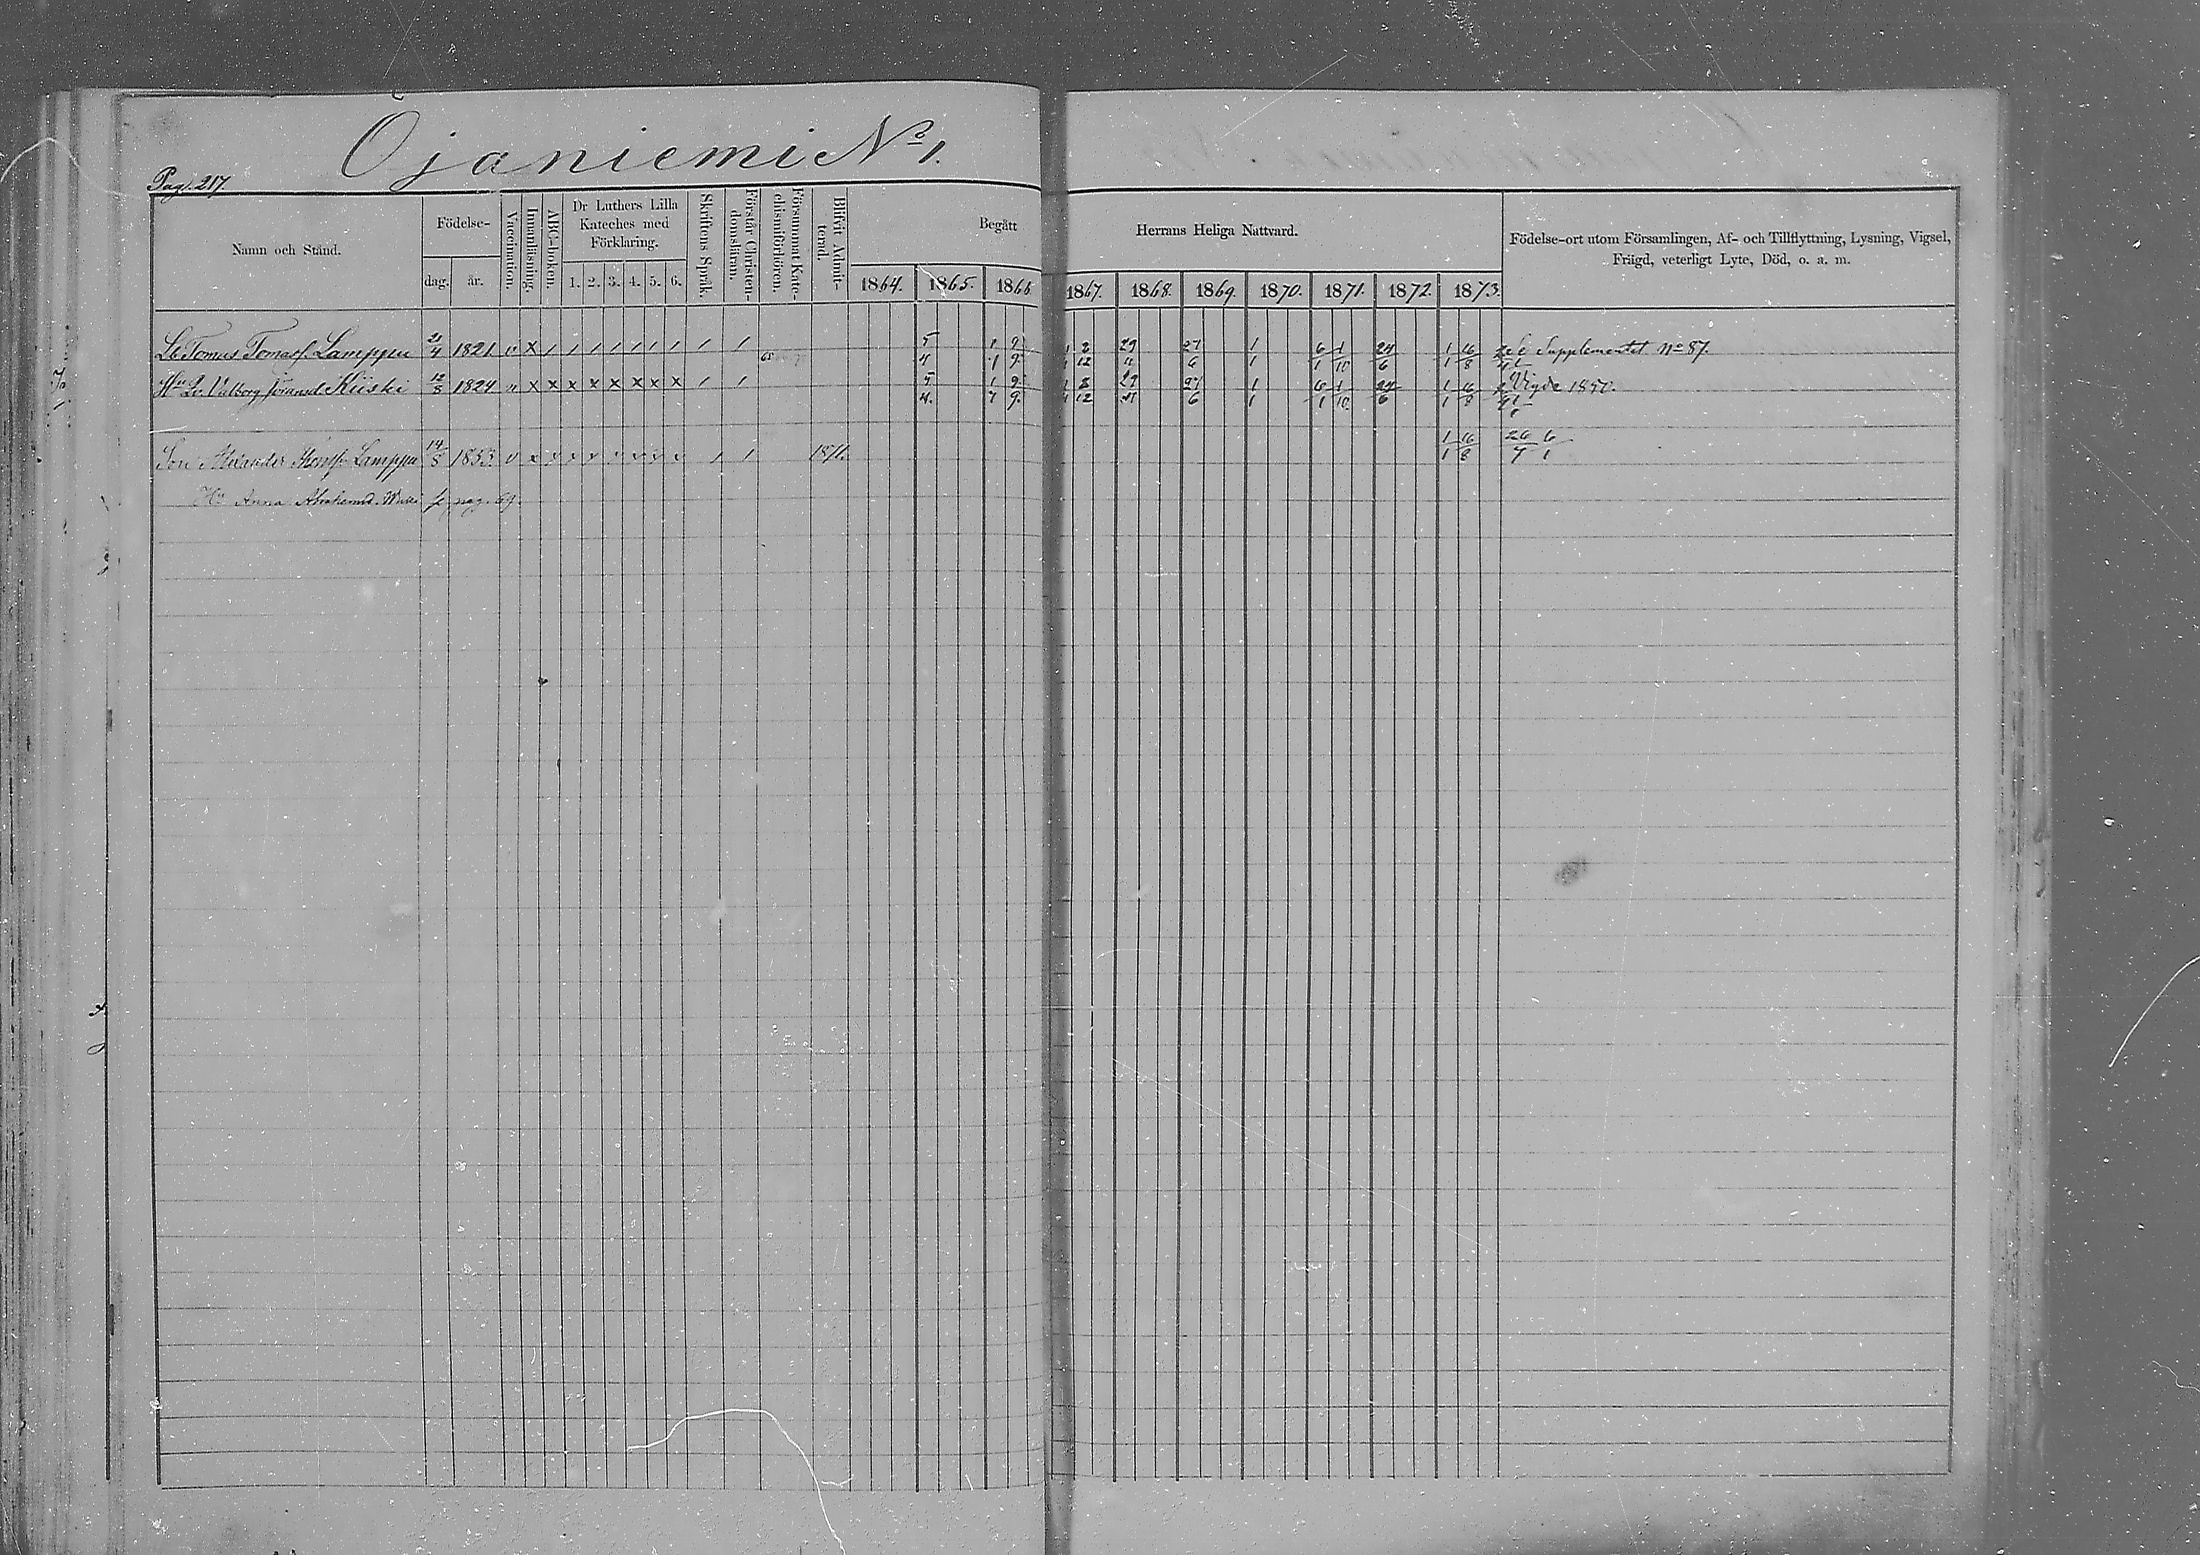 Ojaniemi No 1.
Pag. 217.
Namn och Stånd.
Födelse-
dag.
år.
Vaccination.
Innanläsning.
ABC-boken.
Dr Luthers Lilla
Kateches med
Förklaring.
1. 2. 3. 4. 5. 6.
Skriftens Språk.
Förstår Christen-
domsläran.
Försummat Kate-
chismiförhören.
Blifvit Admit-
terad.
Begått
Herrans Heliga Nattvard.
1864. 1865. 1866. 1867. 1868. 1869. 1870. 1871. 1872. 1873.
Födelse-ort utom Församlingen, Af- och Tillflyttning, Lysning, Vigsel,
Frägd, veterligt Lyte, Död, o. a. m.
Tomas Tomasf. Lamppu 21/4 1821 v x / / / / / / / / / 5/4 1/1 9/9 1/1 2/12 29/4 27/6 1/1 6/1 1/10 24/6 1/1 16/8 Se Supplementet No 87.
Hu Valborg Kiiski 12/8 1824 v x x x x x x x x / / 5/4 1/1 9/9 1/1 2/12 29/4 27/6 1/1 6/1 1/10 24/6 1/1 16/8 Vigde 1850.
Son Alexander Lamppu 14/5 1853 v x x x x v v v v / / 1871. 1/1 16/8 26/7 6/1
Hu Anna Abrahamsd. se pag. 69.